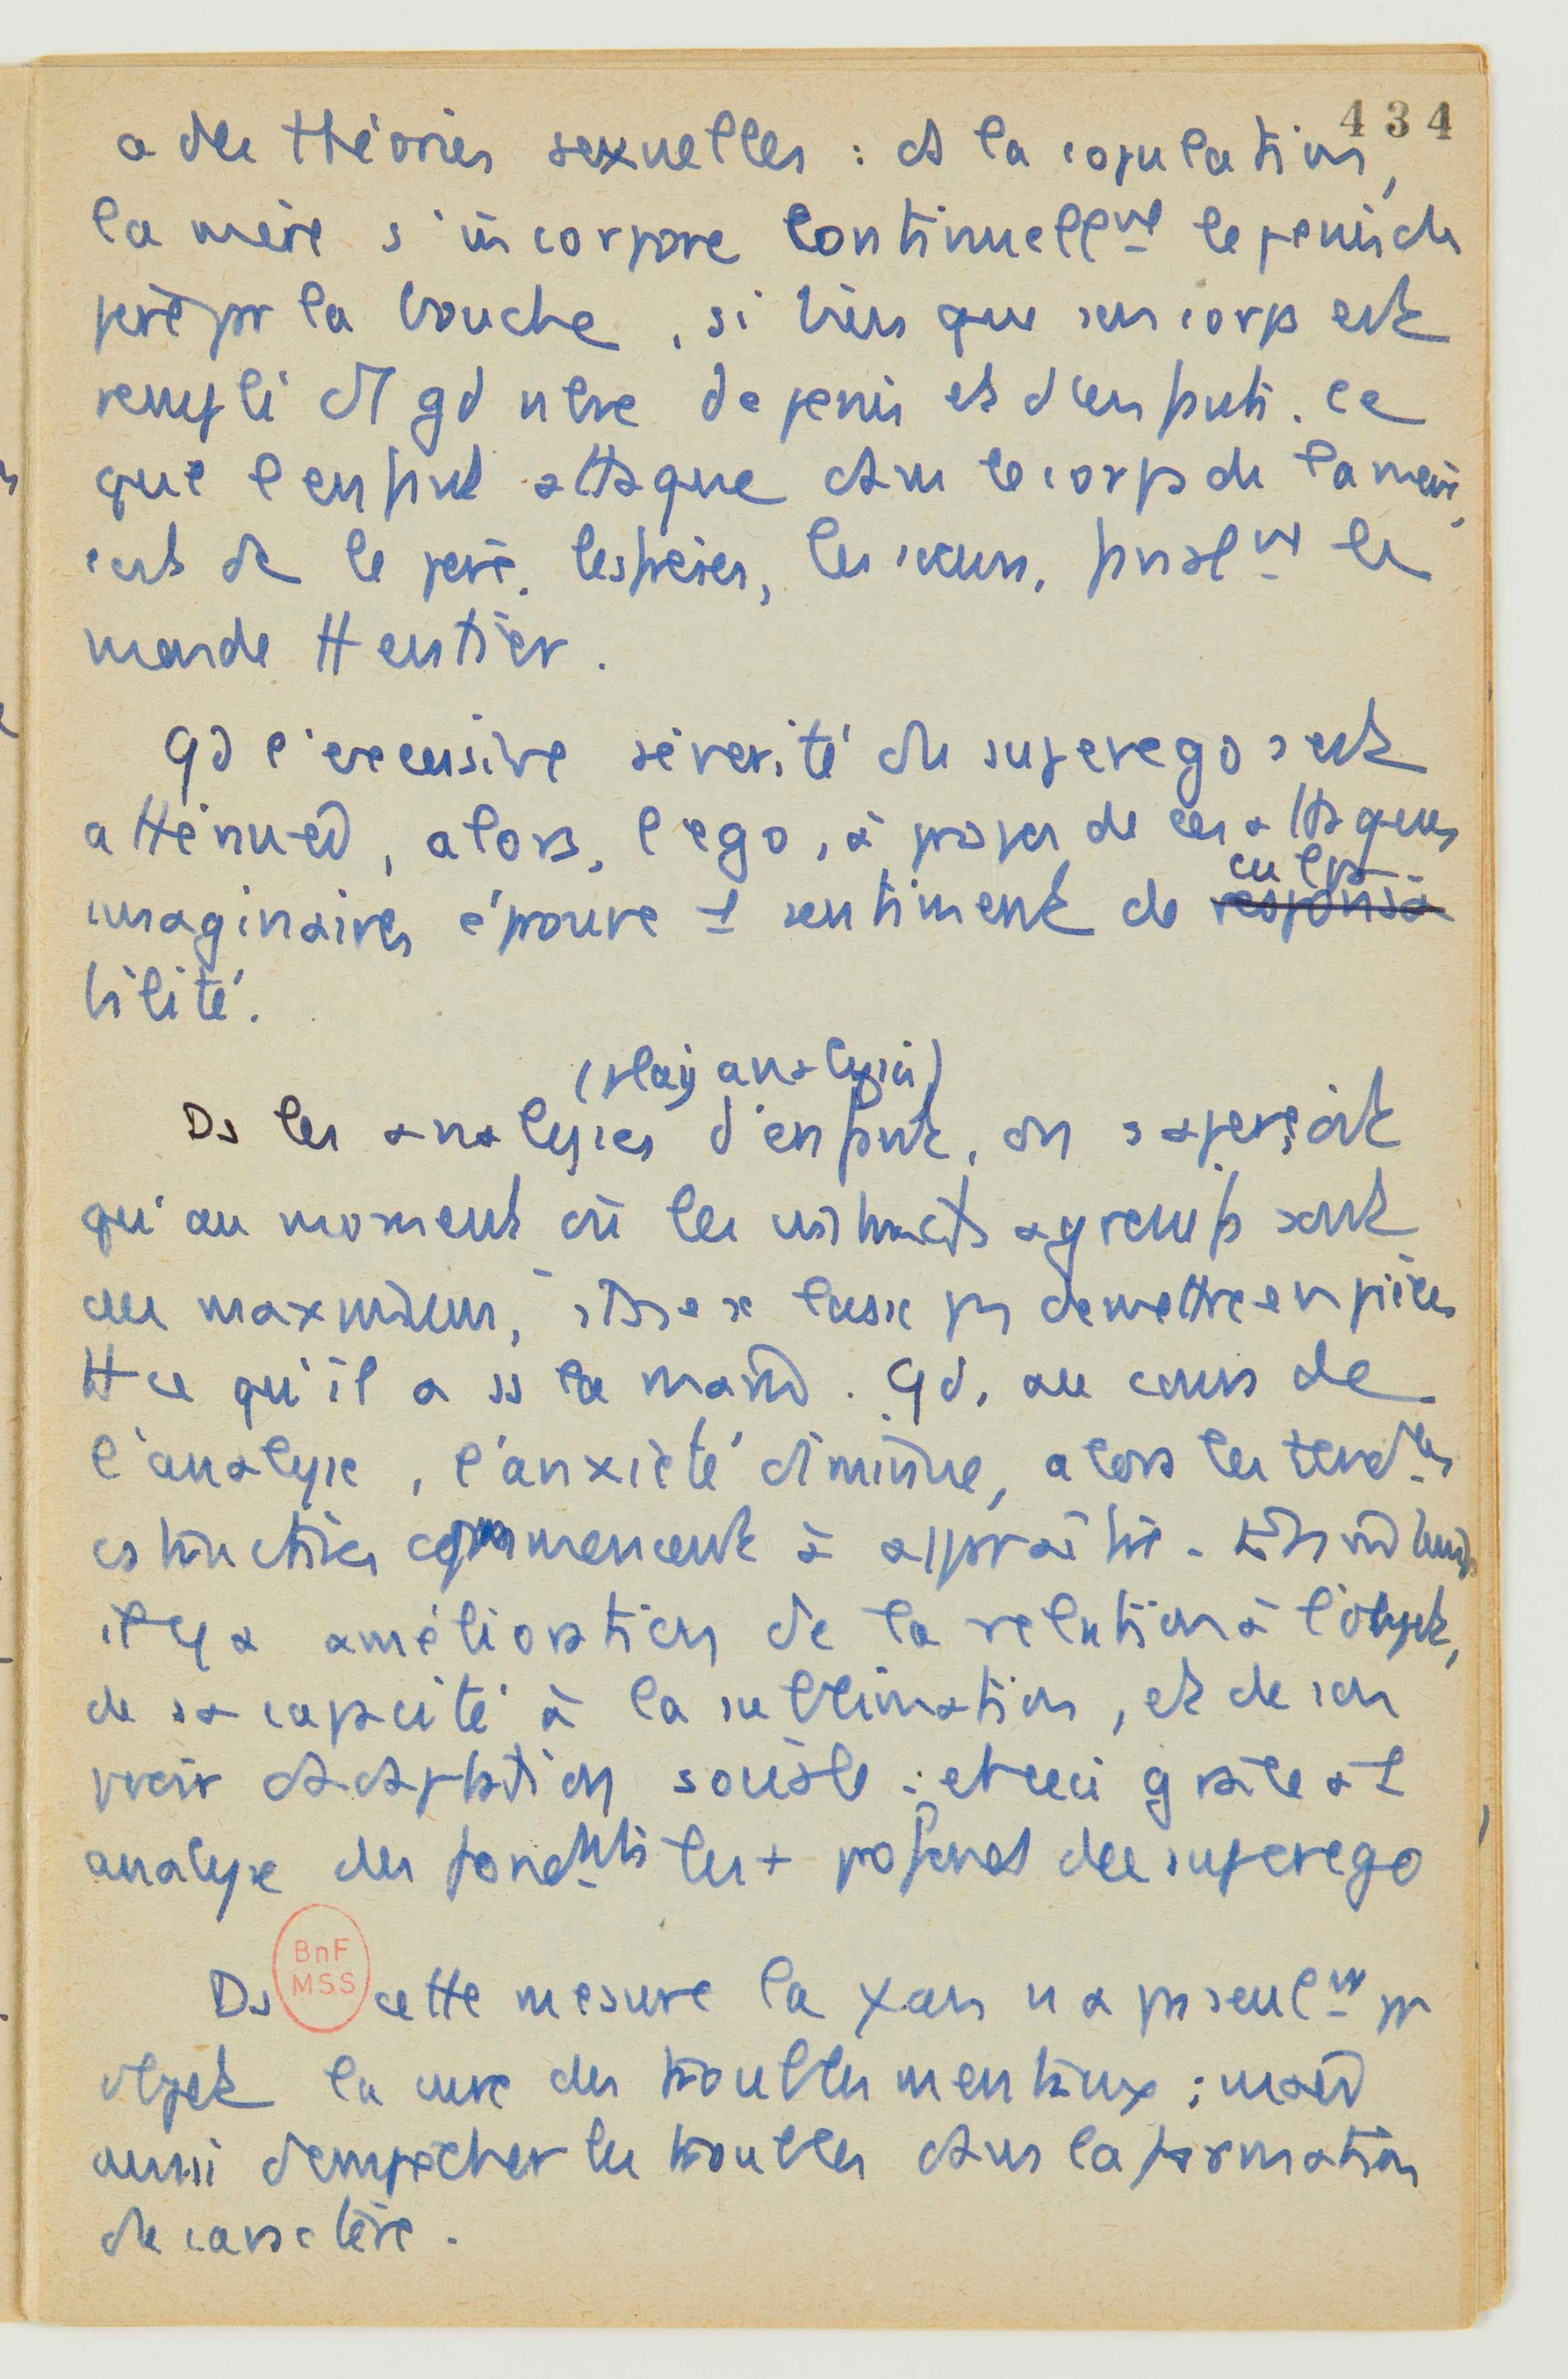 434
a des théories sexuelles : ds la copulation,
la mère s'incorpore continuellmt le penis du
père pr la bouche, si bien que son corps est
rempli d'1 gd nbre de penis et d'enfants. Ce
que l'enfant attaque dans le corps de la mère,
c'est dc le père, les frères, les sœurs, finalmt le
monde tt entier.
Qd l'excessive sévérité du superego s'est
atténuée, alors, l'ego, à propos de ces attaques
imaginaires éprouve 1 sentiment de responsa culpa
bilité.
(play analysis)
Ds les analyses d'enfant, on s'aperçoit
qu'au moment où les instincts agressifs sont
au maximum, de mettre en pièces
tt ce qu'il a ss la main. Qd, au cours de
l'analyse, l'anxiété diminue, alors les tendces
cstructives commencent à apparaître.
il y a amélioration de la relation à l'objet,
de sa capacité à la sublimation, et de son
adaptation sociale : et ceci grâce à 1
analyse des fondmts les + profonds du superego
BnF
MSS
Ds cette mesure la ψan n'a pas seulmt pr
objet la cure des troubles mentaux ; mais
aussi d'empêcher les troubles dans la formation
du caractère.